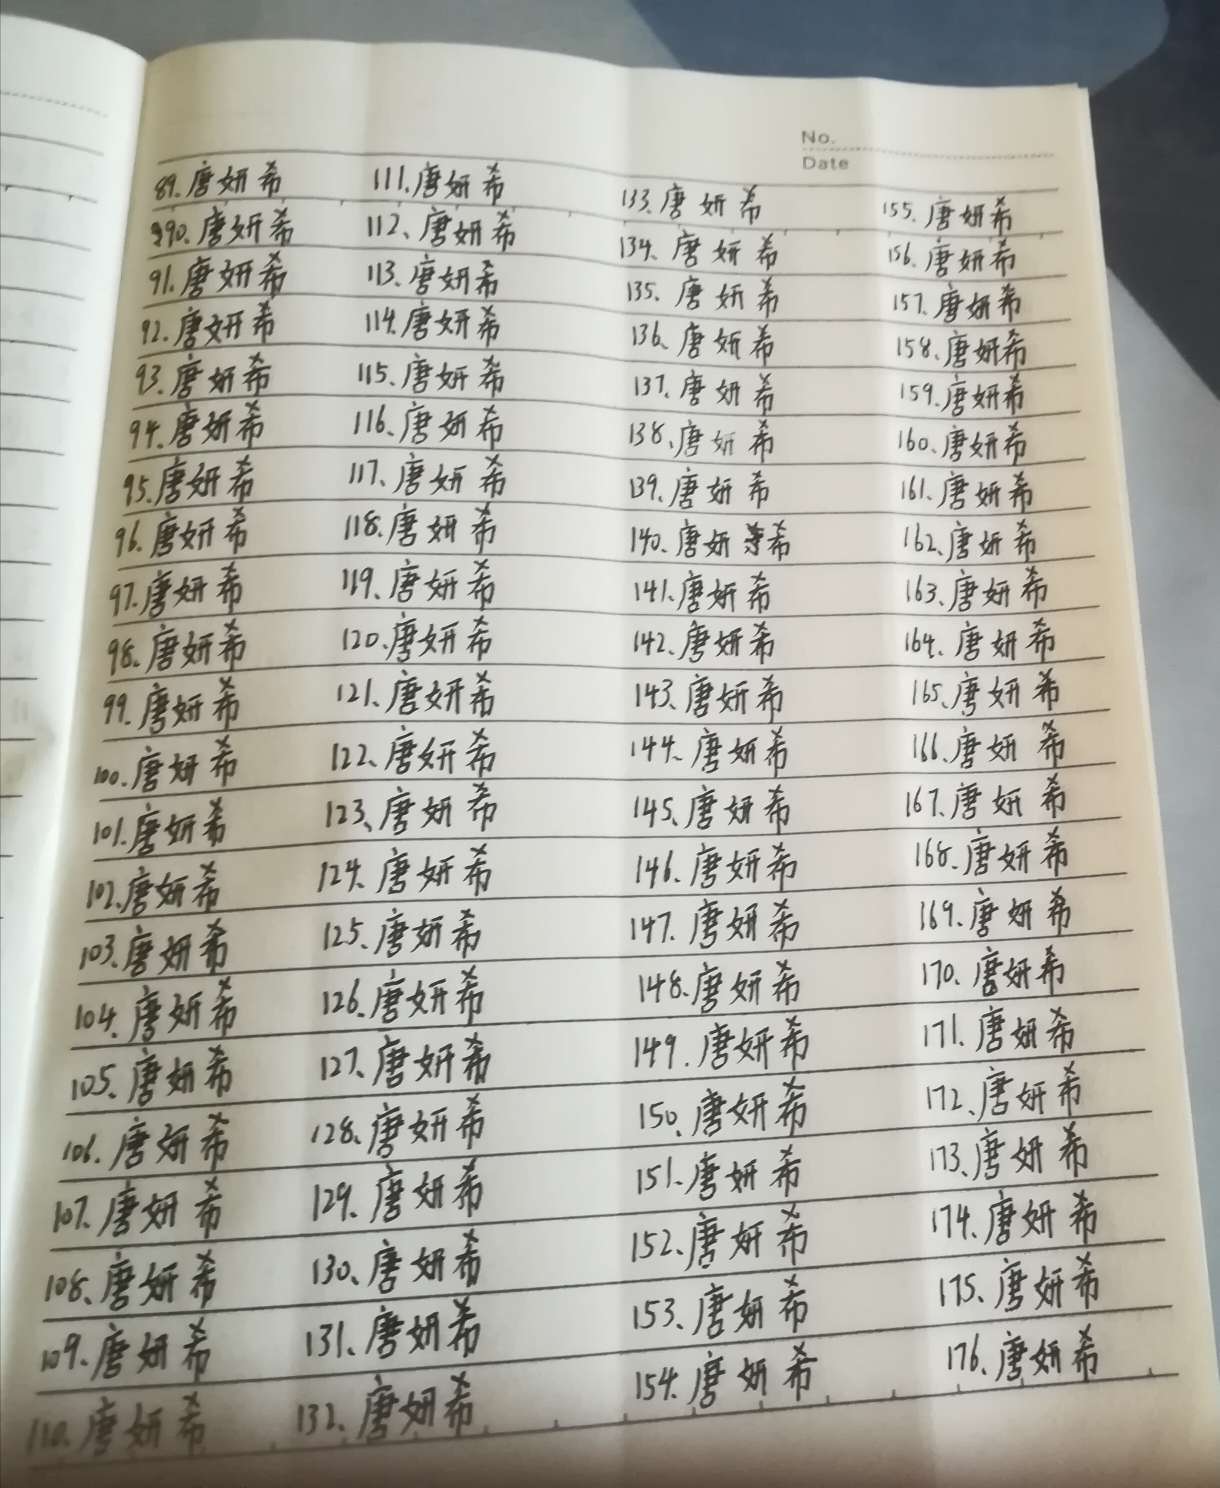 No.
Date
89.唐妍希
90.唐妍希
91.唐妍希
92.唐妍希
93.唐妍希
94.唐妍希
95.唐妍希
96.唐妍希
97.唐妍希
98.唐妍希
99.唐妍希
100.唐妍希
101.唐妍希
102.唐妍希
103.唐妍希
104.唐妍希
105.唐妍希
106.唐妍希
107.唐妍希
108、唐妍希
109.唐妍希
110.唐妍希
111.唐妍希
112、唐妍希
113.唐妍希
114.唐妍希
115、唐妍希
116、唐妍希
117、唐妍希
118.唐妍希
119、唐妍希
120.唐妍希
121、唐妍希
122、唐妍希
123、唐妍希
124、唐妍希
125、唐妍希
126、唐妍希
127、唐妍希
128、唐妍希
129、唐妍希
130、唐妍希
131、唐妍希
132、唐妍希
133、唐妍希
134、唐妍希
135、唐妍希
136、唐妍希
137、唐妍希
138、唐妍希
139、唐妍希
140、唐妍希
141、唐妍希
142、唐妍希
143、唐妍希
144、唐妍希
145、唐妍希
146、唐妍希
147.唐妍希
148、唐妍希
149.唐妍希
150、唐妍希
151、唐妍希
152、唐妍希
153、唐妍希
154.唐妍希
155、唐妍希
156、唐妍希
157.唐妍希
158、唐妍希
159.唐妍希
160、唐妍希
161.唐妍希
162、唐妍希
163、唐妍希
164、唐妍希
165、唐妍希
166、唐妍希
167.唐妍希
168.唐妍希
169、唐妍希
170、唐妍希
171、唐妍希
172、唐妍希
173、唐妍希
174.唐妍希
175、唐妍希
176、唐妍希